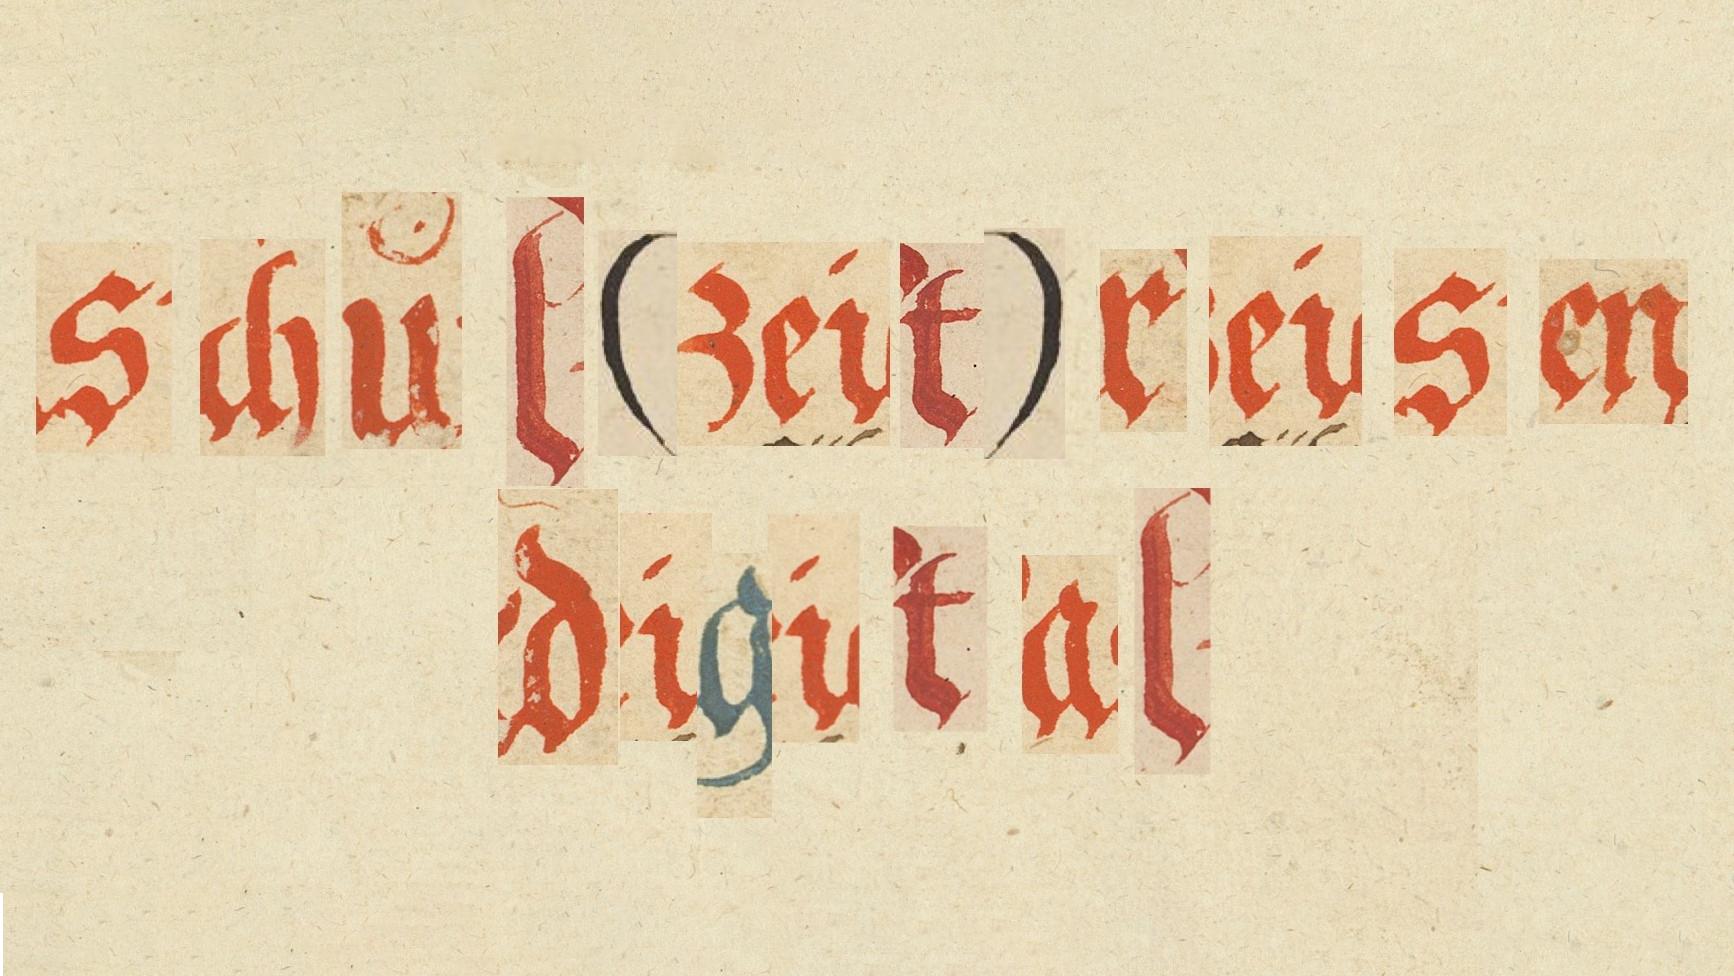 schůl(zeit)reisen
digital